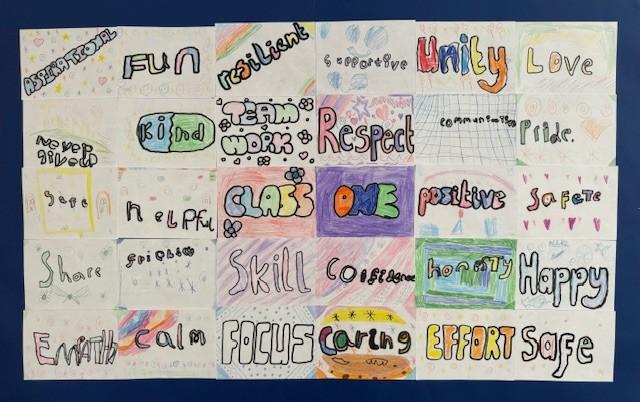 ASPIRATIONAL
FUN
resilient
supportive
Unity
Love
never
give up
Kind
TEAM
WORK
Respect
communication
Pride.
Safe
helpful
CLASS
ONE
positive
Safety
Share
Skill
Happy
EMPATHY
calm
FOCUS
Caring
EFFORT
Safe